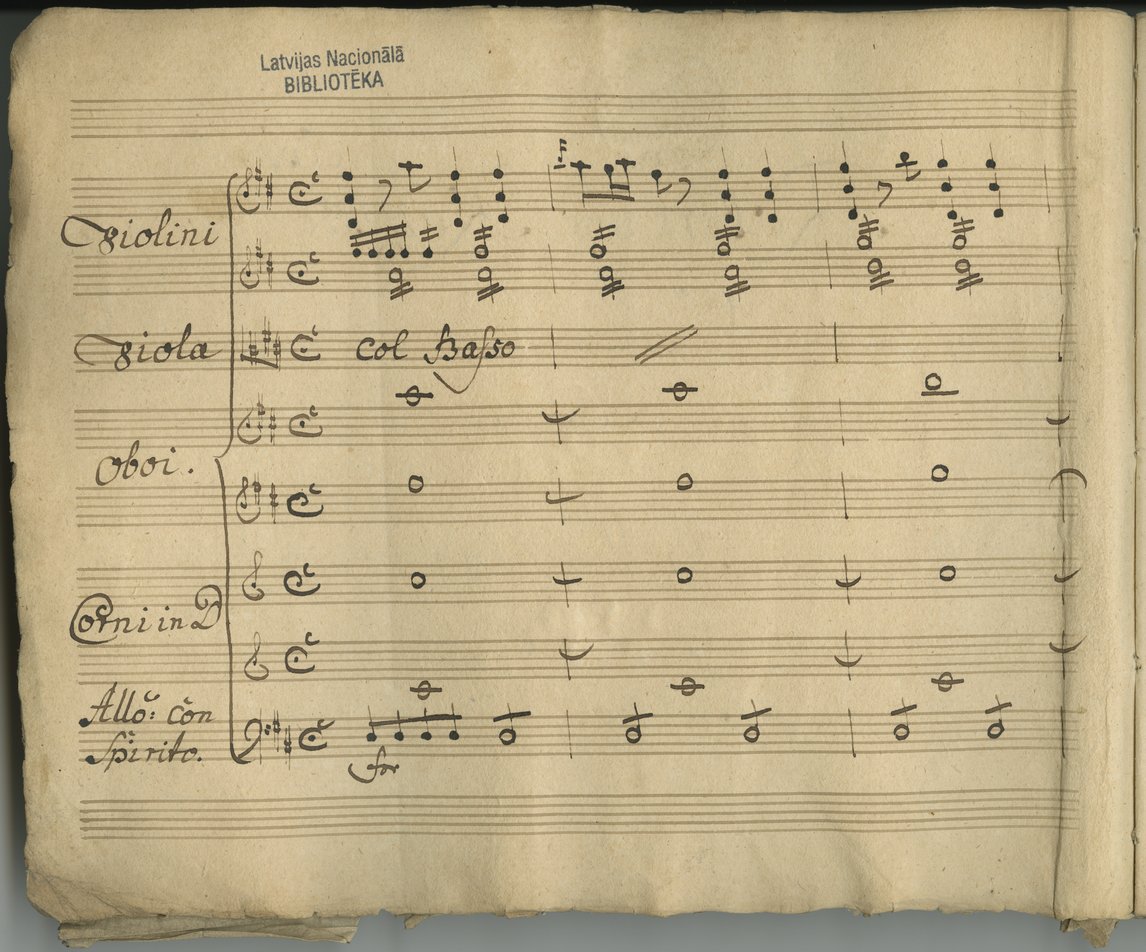 Latvijas Nacionālā
BIBLIOTĒKA
Violini
Viola
col Baſso
Oboi.
Corni in D
Allo: con
Spirito.
for